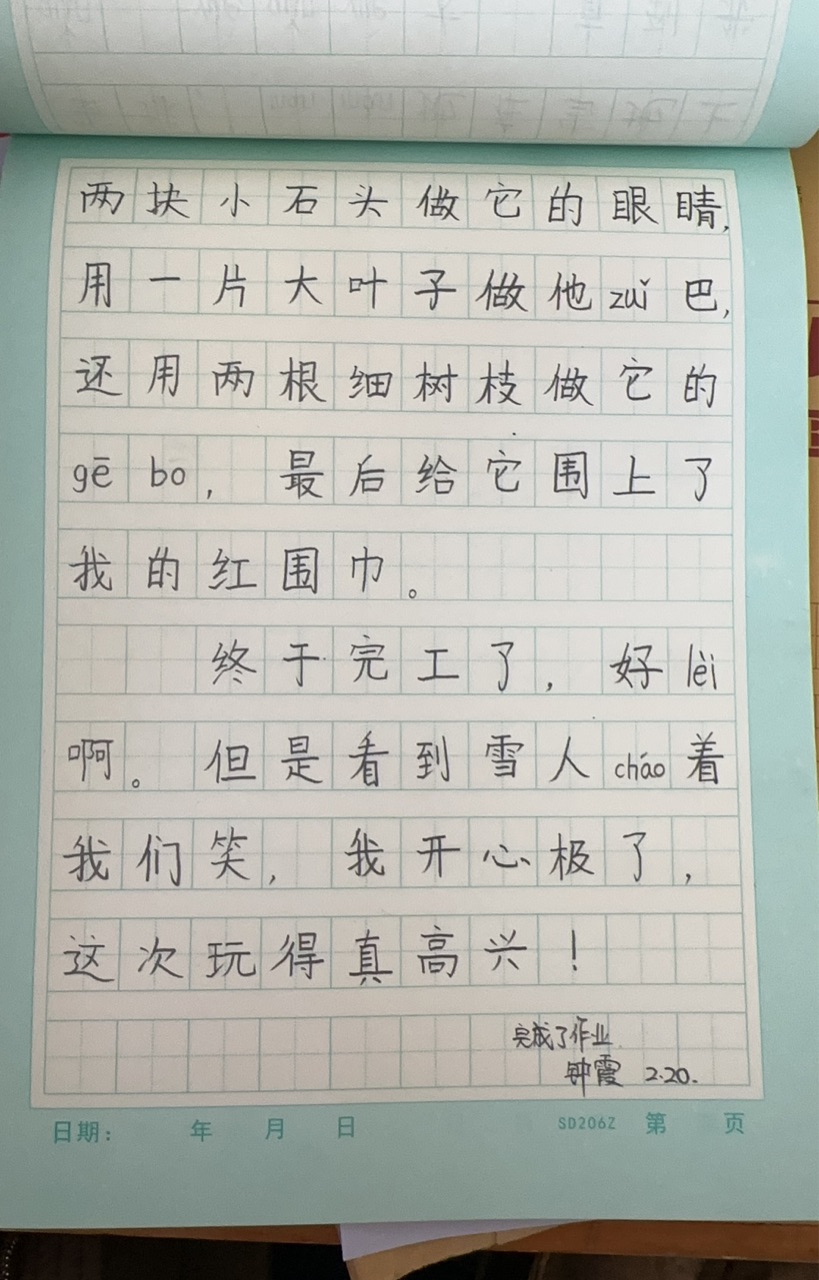 两块小石头做它的眼睛,
用一片大叶子做他zuǐ巴,
还用两根细树枝做它的
gē bo, 最后给它围上了
我的红围巾。
终于完工了, 好lèi
啊。但是看到雪人cháo着
我们笑, 我开心极了,
这次玩得真高兴!
完成了作业
钟霞 2.20.
日期: 年 月 日 SD206Z 第 页